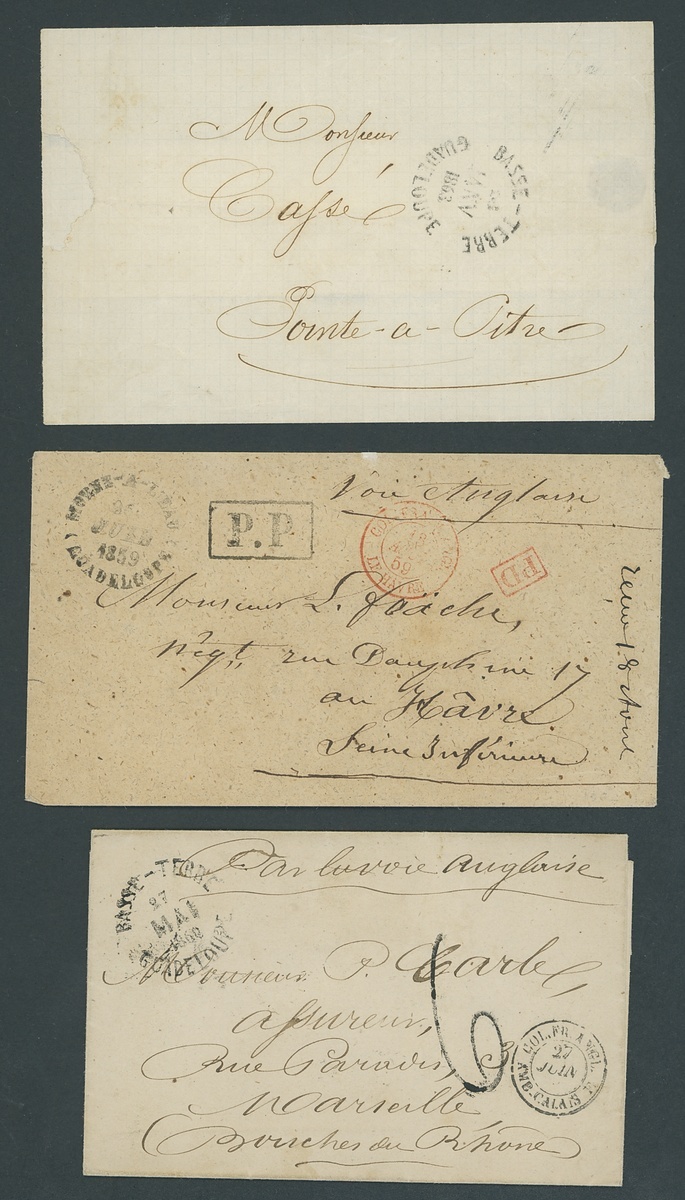 Monsieur
Cassé
Pointe-a-Pitre
BASSE-TERRE
1862
GUADELOUPE
Voie Anglaise
MORNE-A-L'EAU
1859
GUADELOUPE
P.P
COL.FR.
59
PD
Monsieur L.
négt, rue Dauphine 17
au Hâvre
Seine Inférieure
Par la voie anglaise
BASSE-TERRE
27
MAI
1860
GUADELOUPE
Monsieur P.
assureur,
Rue Paradis, 3
Marseille
Bouches du Rhône
6
COL.FR. ANGL.
27
JUIN
AMB.CALAIS